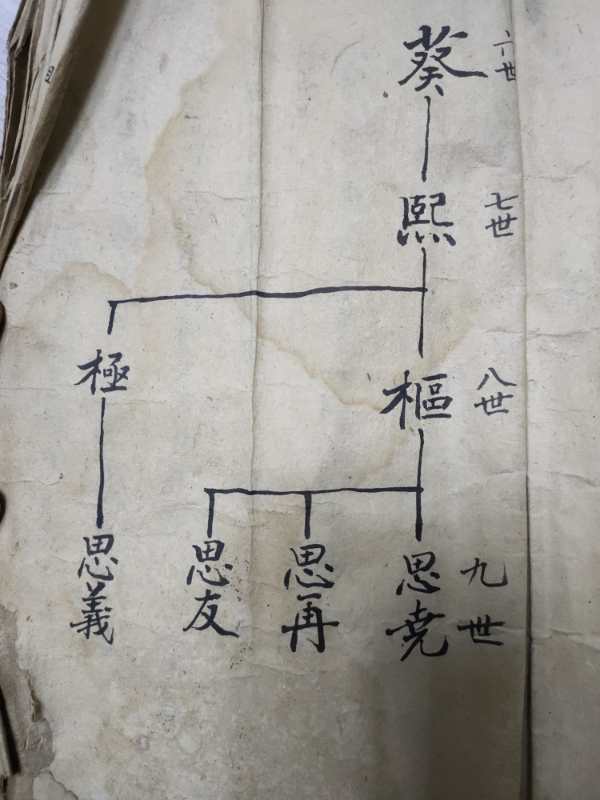 葵 六世
熙 七世
樞 八世
極
思堯 九世
思再
思友
思義